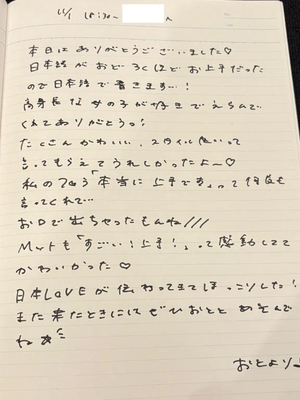 11/1 15:30〜
本日はありがとうございました♡
日本語がおどろくほどお上手だった
ので日本語で書きます…!
高身長な女の子が好きでえらんで
くれてありがとうっ!
たくさんかわいい、スタイル良いって
言ってもらえてうれしかったよ〜♡
私の フェラ「本当に上手です」って何度も
言ってくれて…
お口で出ちゃったもんね///
Mットも「すごい!上手!」って感動してて
かわいかった♡
日本LOVEが伝わってきてほっこりした!
また来たときにはぜひおとと あそんで
ねぁ
おとより